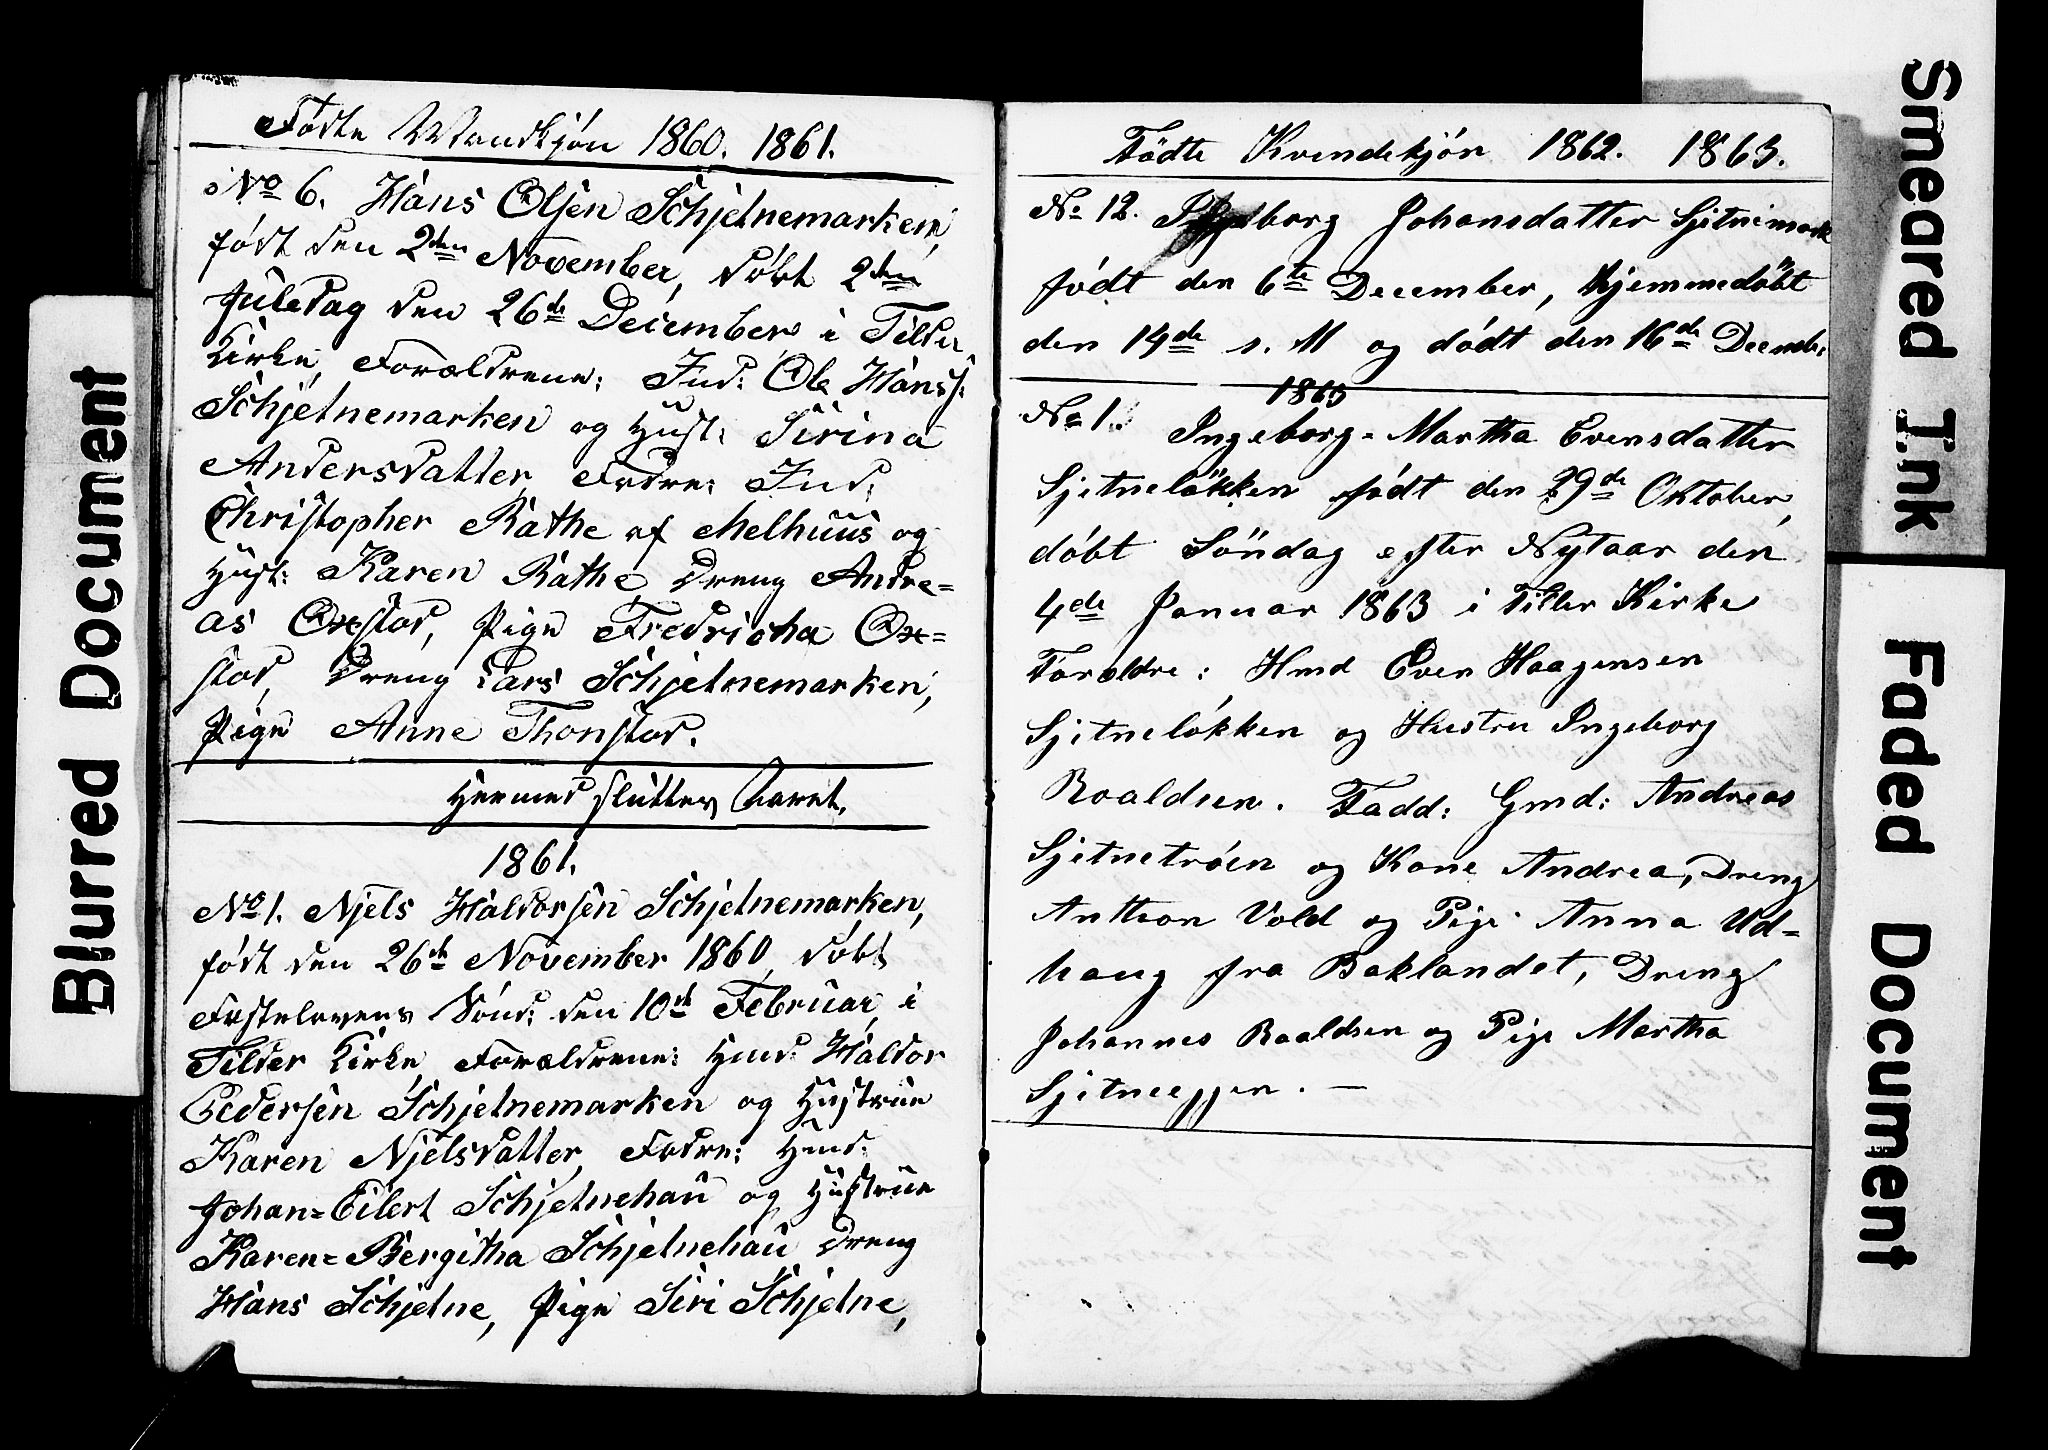 Blurred Document
Fødte Mandkjøn 1860. 1861.
No 6. Hans Olsen Schjetnemarken,
født den 2den November, døbt 2den
Juledag den 26de December i Tilder
Kirke, Forældrene: Ind: Ole Hanss:
Schjetnemarken og Hust: Sirina
Andersdatter, Fadre: Ind:
Christopher Rathe af Melhuus og
Hust: Karen Rathe, Dreng Andre=
as Oxstad, Pige Fredricha Ox=
stad, Dreng Lars Schjetnemarken,
Pige Anne Thonstad.
Hermed slutter Aaret.
1861.
No 1. Njels Haldorsen Schjetnemarken,
født den 26de November 1860, døbt
Fastelavens Sønd: den 10de Februar, i
Tilder Kirke, Forældrene: Hmd: Haldor
Pedersen Schjetnemarken og Hustrue
Karen Njelsdatter, Fadre: Hmd:
Johan=Eilert Schjetnehau og Hustrue
Karen=Bergitha Schjetnehau Dreng
Hans Schjetne, Pige Siri Schjetne,
Födte Kvindekjön 1862. 1863.
No 12. Ingeborg Johansdatter Sjetnimark
født den 6te December, hjemmedöbt
den 14de s. M og dódt den 16de Decembr
1863
No 1. Ingeborg-Martha Evensdatter
Sjetneløkken født den 29de Oktober,
døbt Söndag efter Nytaar den
4de Januar 1863 i Tiller Kirke
Foræeldre: Hmd Even Haagensen
Sjetneløkken og Hustru Ingeborg
Roaldsen. Fadd: Gmd: Andreas
Sjetnetrøen og Kone Andrea, Dreng
Anthon Vold og Pige Anna Ud=
haug fra Baklandet, Dreng
Johannes Roaldsen og Pige Martha
Sjetneeggen. —
Smeared Ink
Faded Document